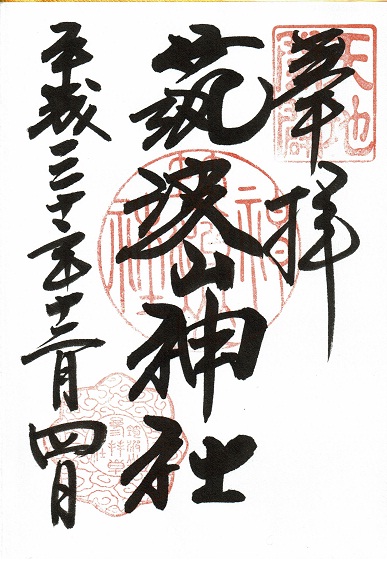 奉拝
筑波山神社
平成三十年十二月四日